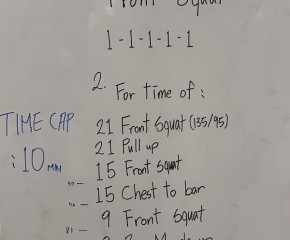 Front Squat
1-1-1-1-1
2. For time of :
TIME CAP
: 10 MIN
21 Front Squat (135/95)
21 Pull up
15 Front Squat
15 Chest to bar
9 Front Squat